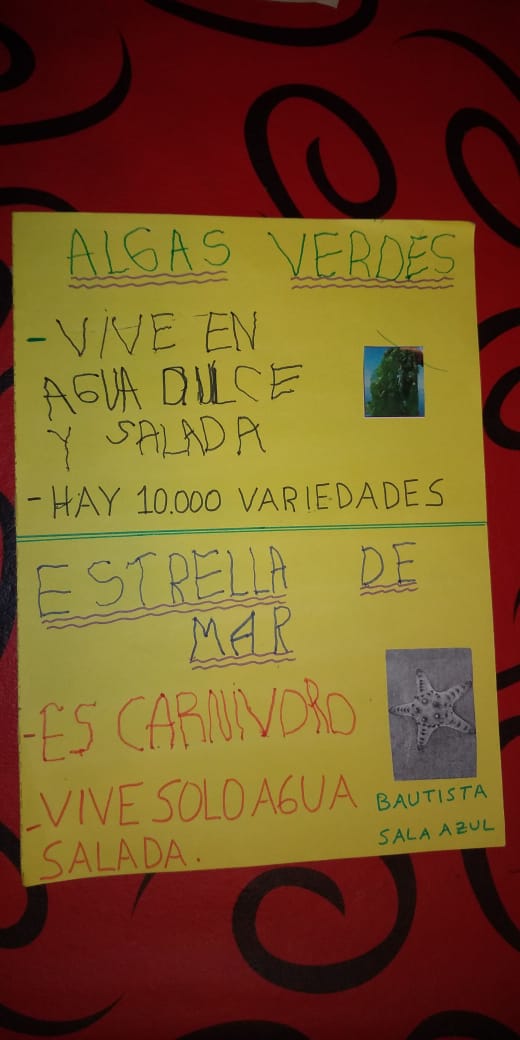 ALGAS VERDES
- VIVE EN
AGUA DULCE
Y SALADA
- HAY 10.000 VARIEDADES
ESTRELLA DE
MAR
- ES CARNIVORO
- VIVE SOLO AGUA
SALADA.
BAUTISTA
SALA AZUL